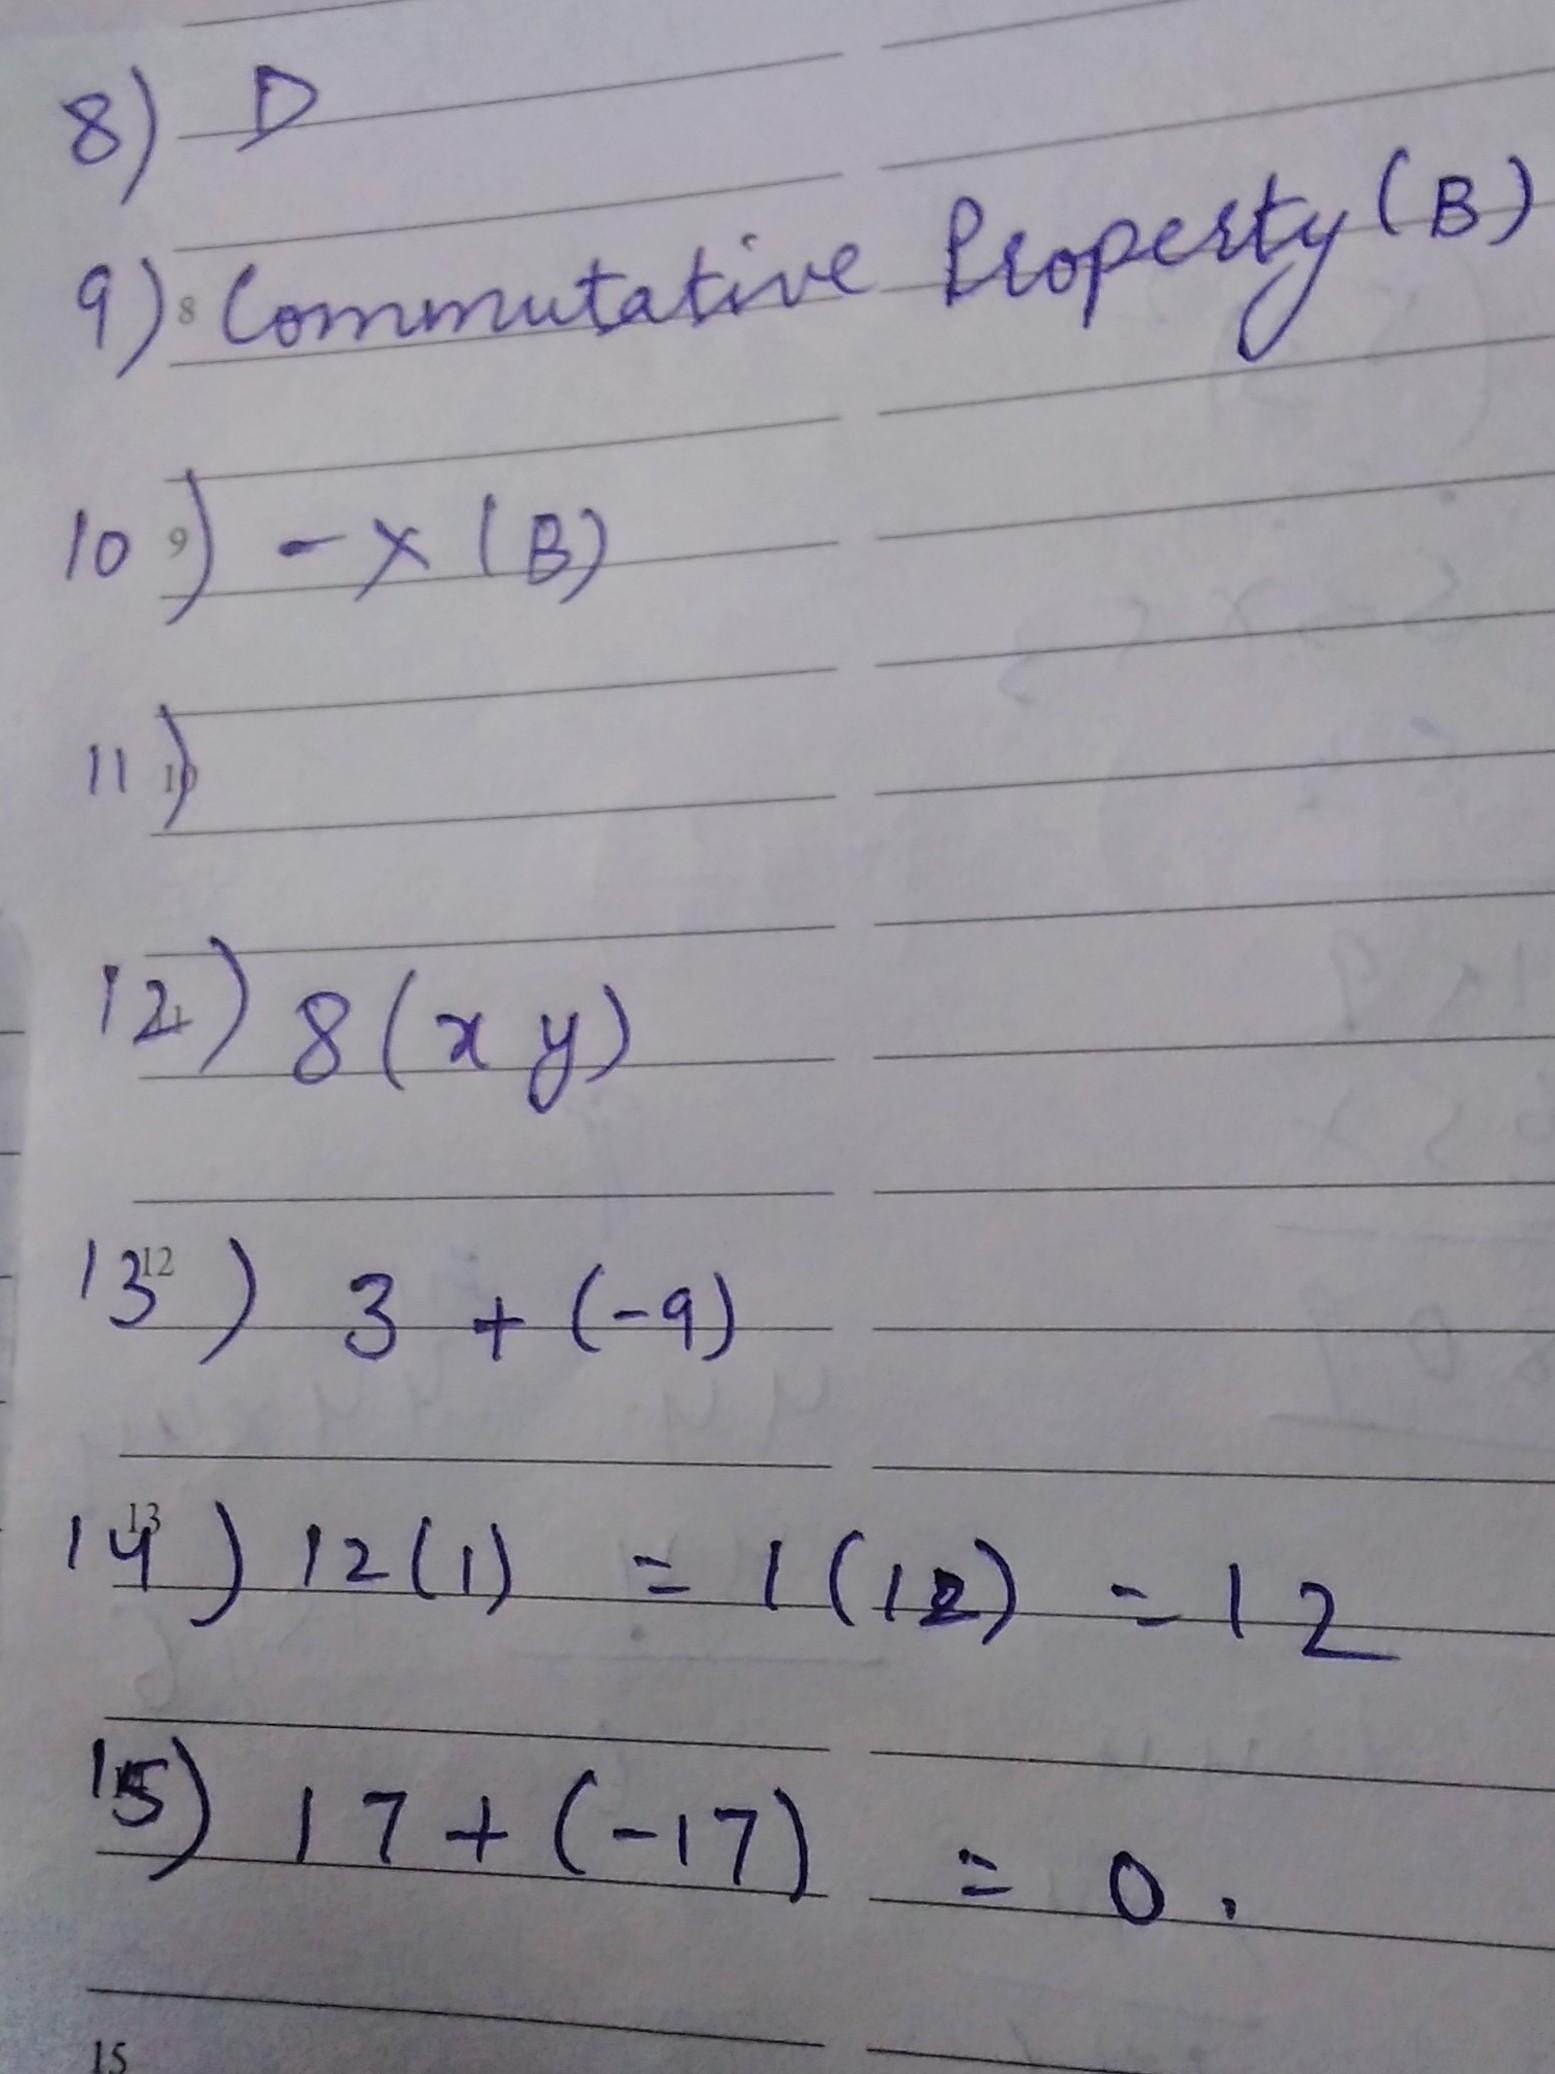 8) D
9) 8 Commutative Property (B)
10 9) -x (B)
11) 10
12) 8(xy)
13) 12 3 + (-9)
14) 13 12(1) = 1(12) = 12
15) 17 + (-17) = 0.
15